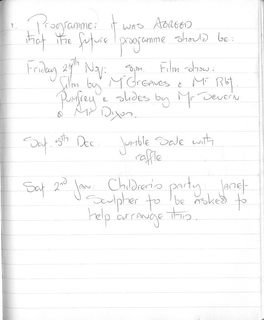 1. Programme: It was AGREED
that the future programme should be:
Friday 27th Nov: 8pm. Film show.
film by Mr Greaves & Mr
Pumfrey & slides by Mr Severn
& Mr Dixon.
Sat. 5th Dec. Jumble Sale with
raffle
Sat 2nd Jan. Children's party Janet
Sculpher to be asked to
help arrange this.